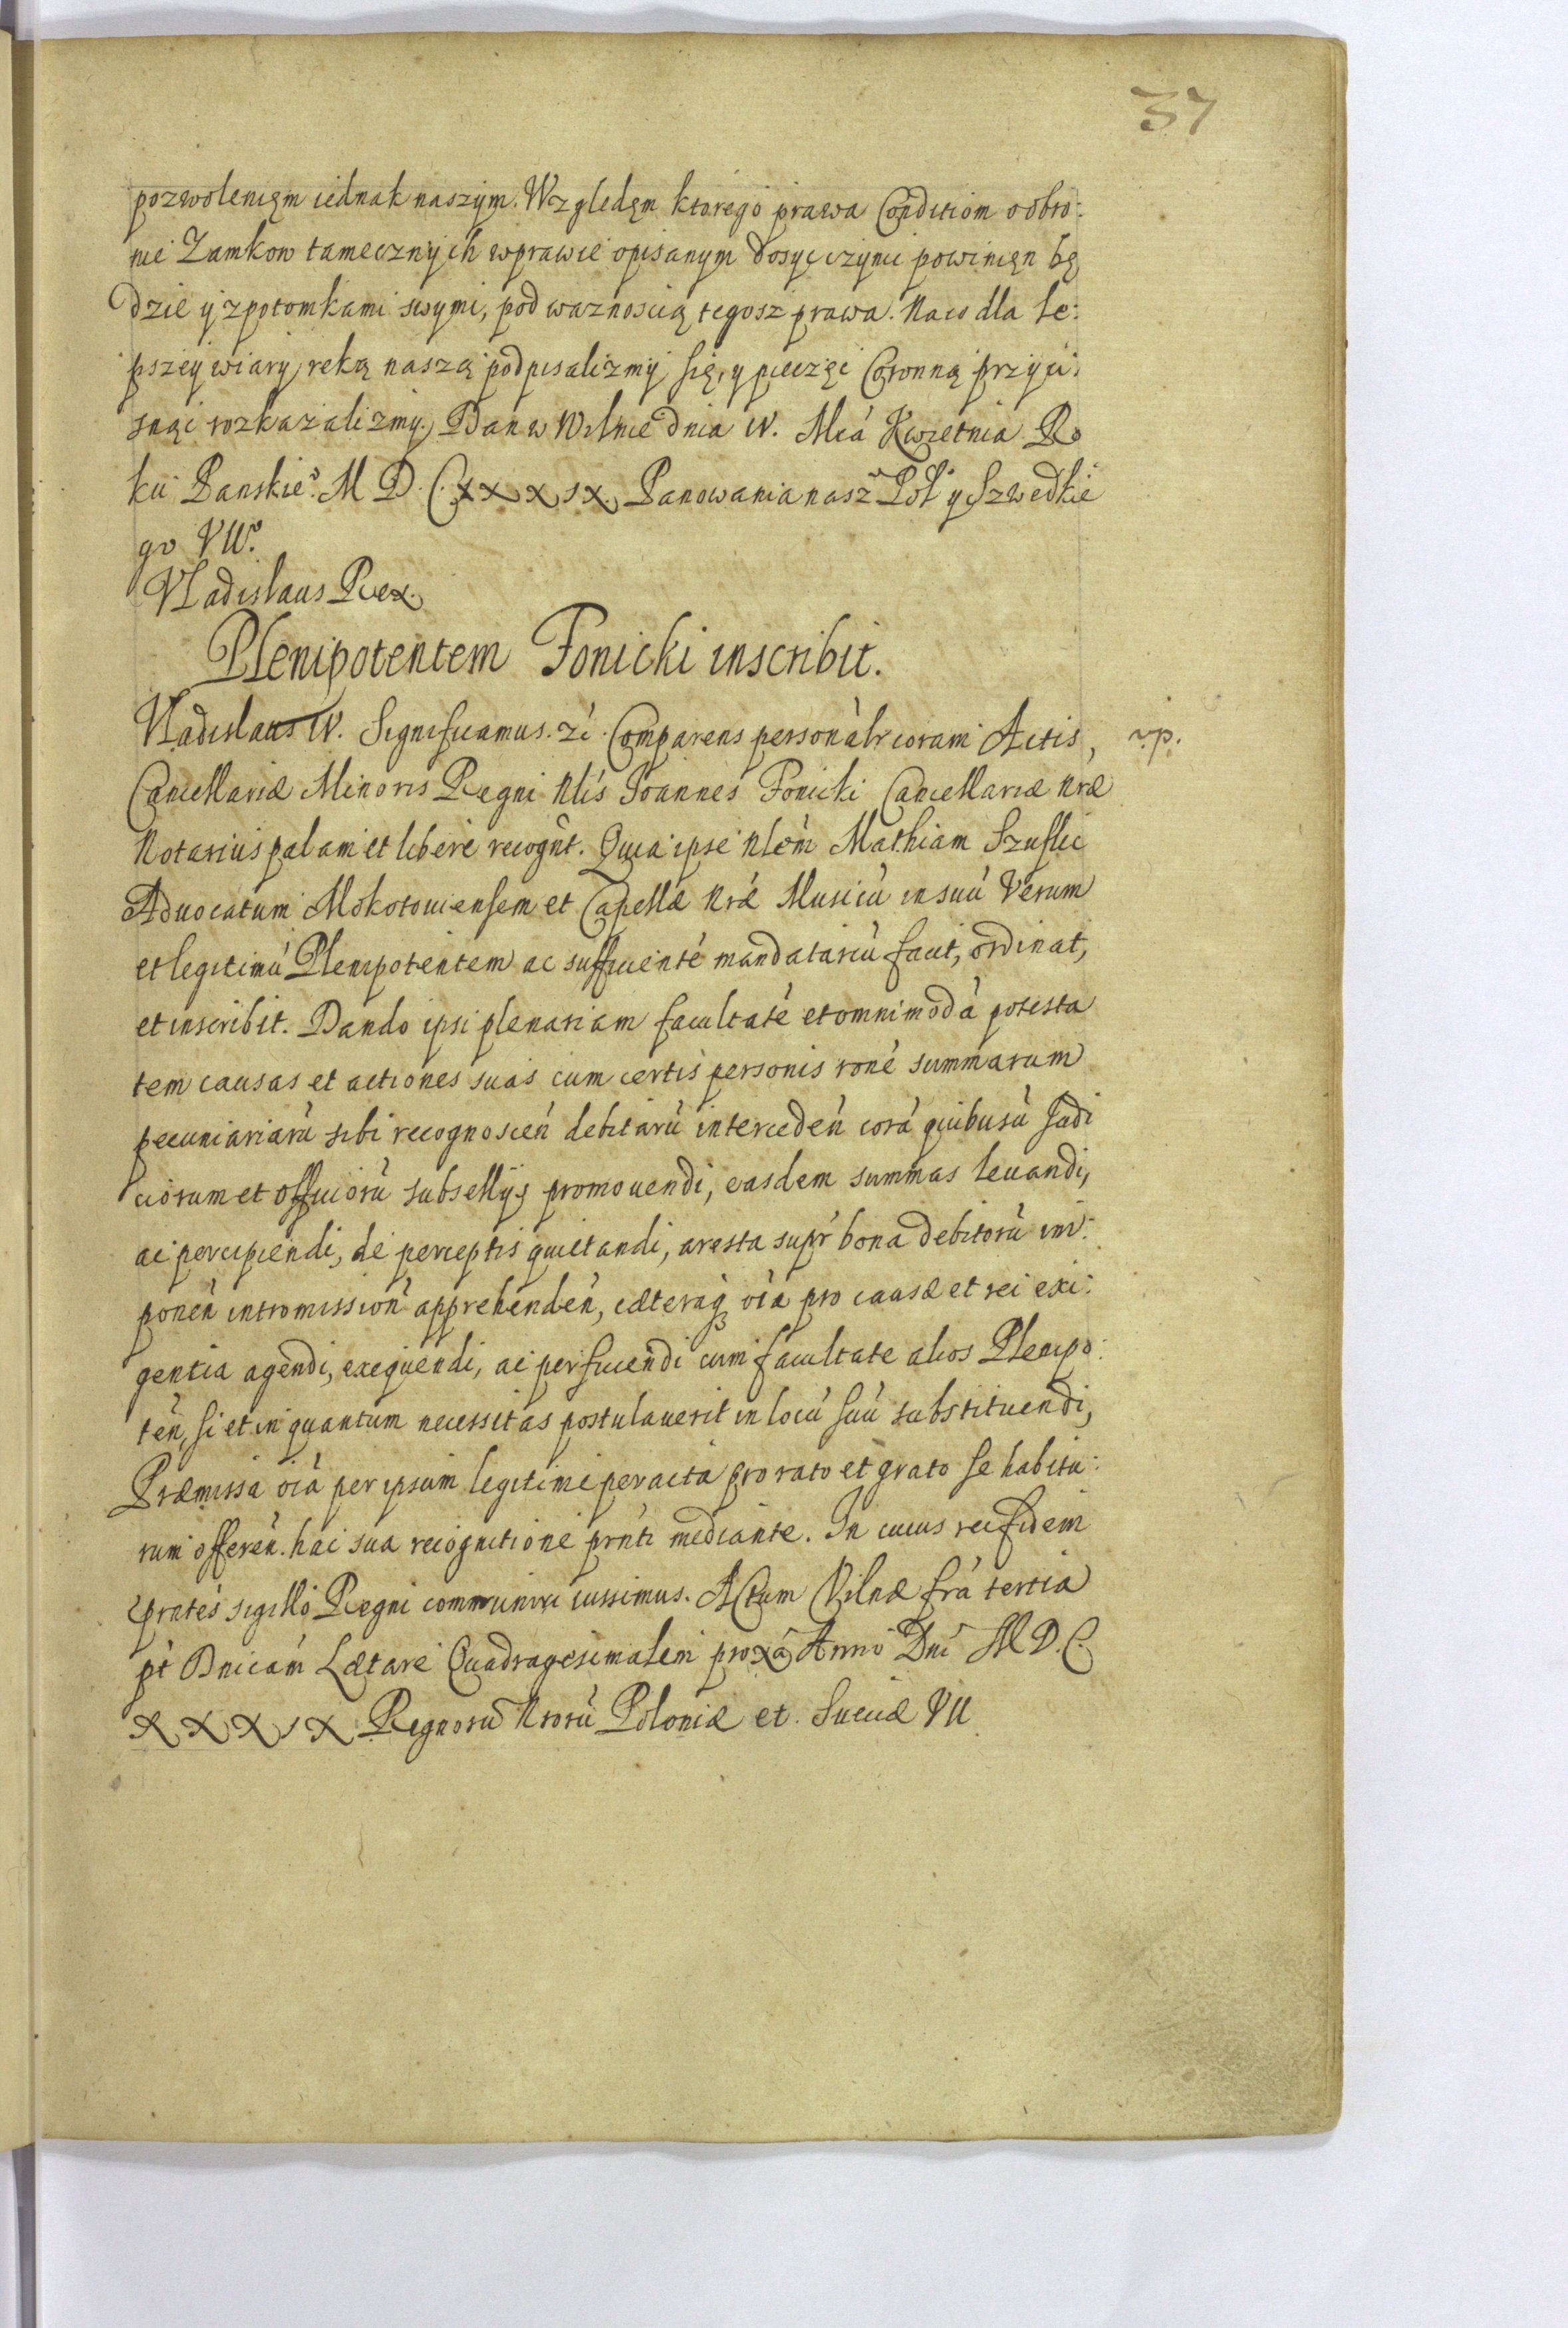 37
pozwolenięm iednak naszym. Względęm ktorego prawa Condition o obro:
nie Zamkow tamecznych w prawie opisanym dosyc czynic powinięn bę
dzie y z potomkami swymi, pod waznoscią tegosz prawa. Na co dla le:
pszey wiary, reką naszą podpisalizmy się, y pieczęc Coronną przyci:
snąc rozkazalizmy. Dan w Wilnie dnia IV. Mca Kwietnia Ro
ku Panskieo. M D. C. XXXIX. Panowania nasz Pol y Szwedkie
go VIIo.
Vladislaus Rex.
Plenipotentem Fonicki inscribit.
Vladislaus IV. Significamus. z̀c Comparens personàlr coram Actis, rp.
Cancellariæ Minoris Regni Nlis Joannes Fonicki Cancellariæ Nræ
Notarius palam et libere recognt. Quia ipse Nlem Mathiam Szuflic
Advocatum Mokotoviensem et Capellæ Nræ Musicu in suu Verum
et legitimu Plenipotentem ac sufficiente mandatariu facit, ordinat,
et inscribit. Dando ipsi plenariam facultate et omnimoda potesta
tem causas et actiones suas cum certis personis rone summarum
pecuniariaru sibi recognoscen debitaru interceden cora quibusu Judi
ciorum et officioru subsellijs promovendi, easdem summas levandi,
ac percipiendi, de perceptis quietandi, aresta supr bona debitoru im:
ponen intromission apprehenden, cæteraq oia pro causæ et rei exi:
gentia agendi, exequendi, ac perficiendi cum facultate alios Plenipo:
ten, si et in quantum necessitas postulaverit in locu suu substituendi,
Præmissa oia per ipsum legitime peracta pro rato et grato se habitu:
rum offeren. hac sua recognitione prnti mediante. In cuius rei fidem
prntes sigillo Regni communiri iussimus. Actum Vilnæ fra tertia
pt Dnicam Lætare Quadragesimalem proxa Anno Dni M D. C.
XXXIX Regnoru Nroru Poloniæ et Sueciæ VII